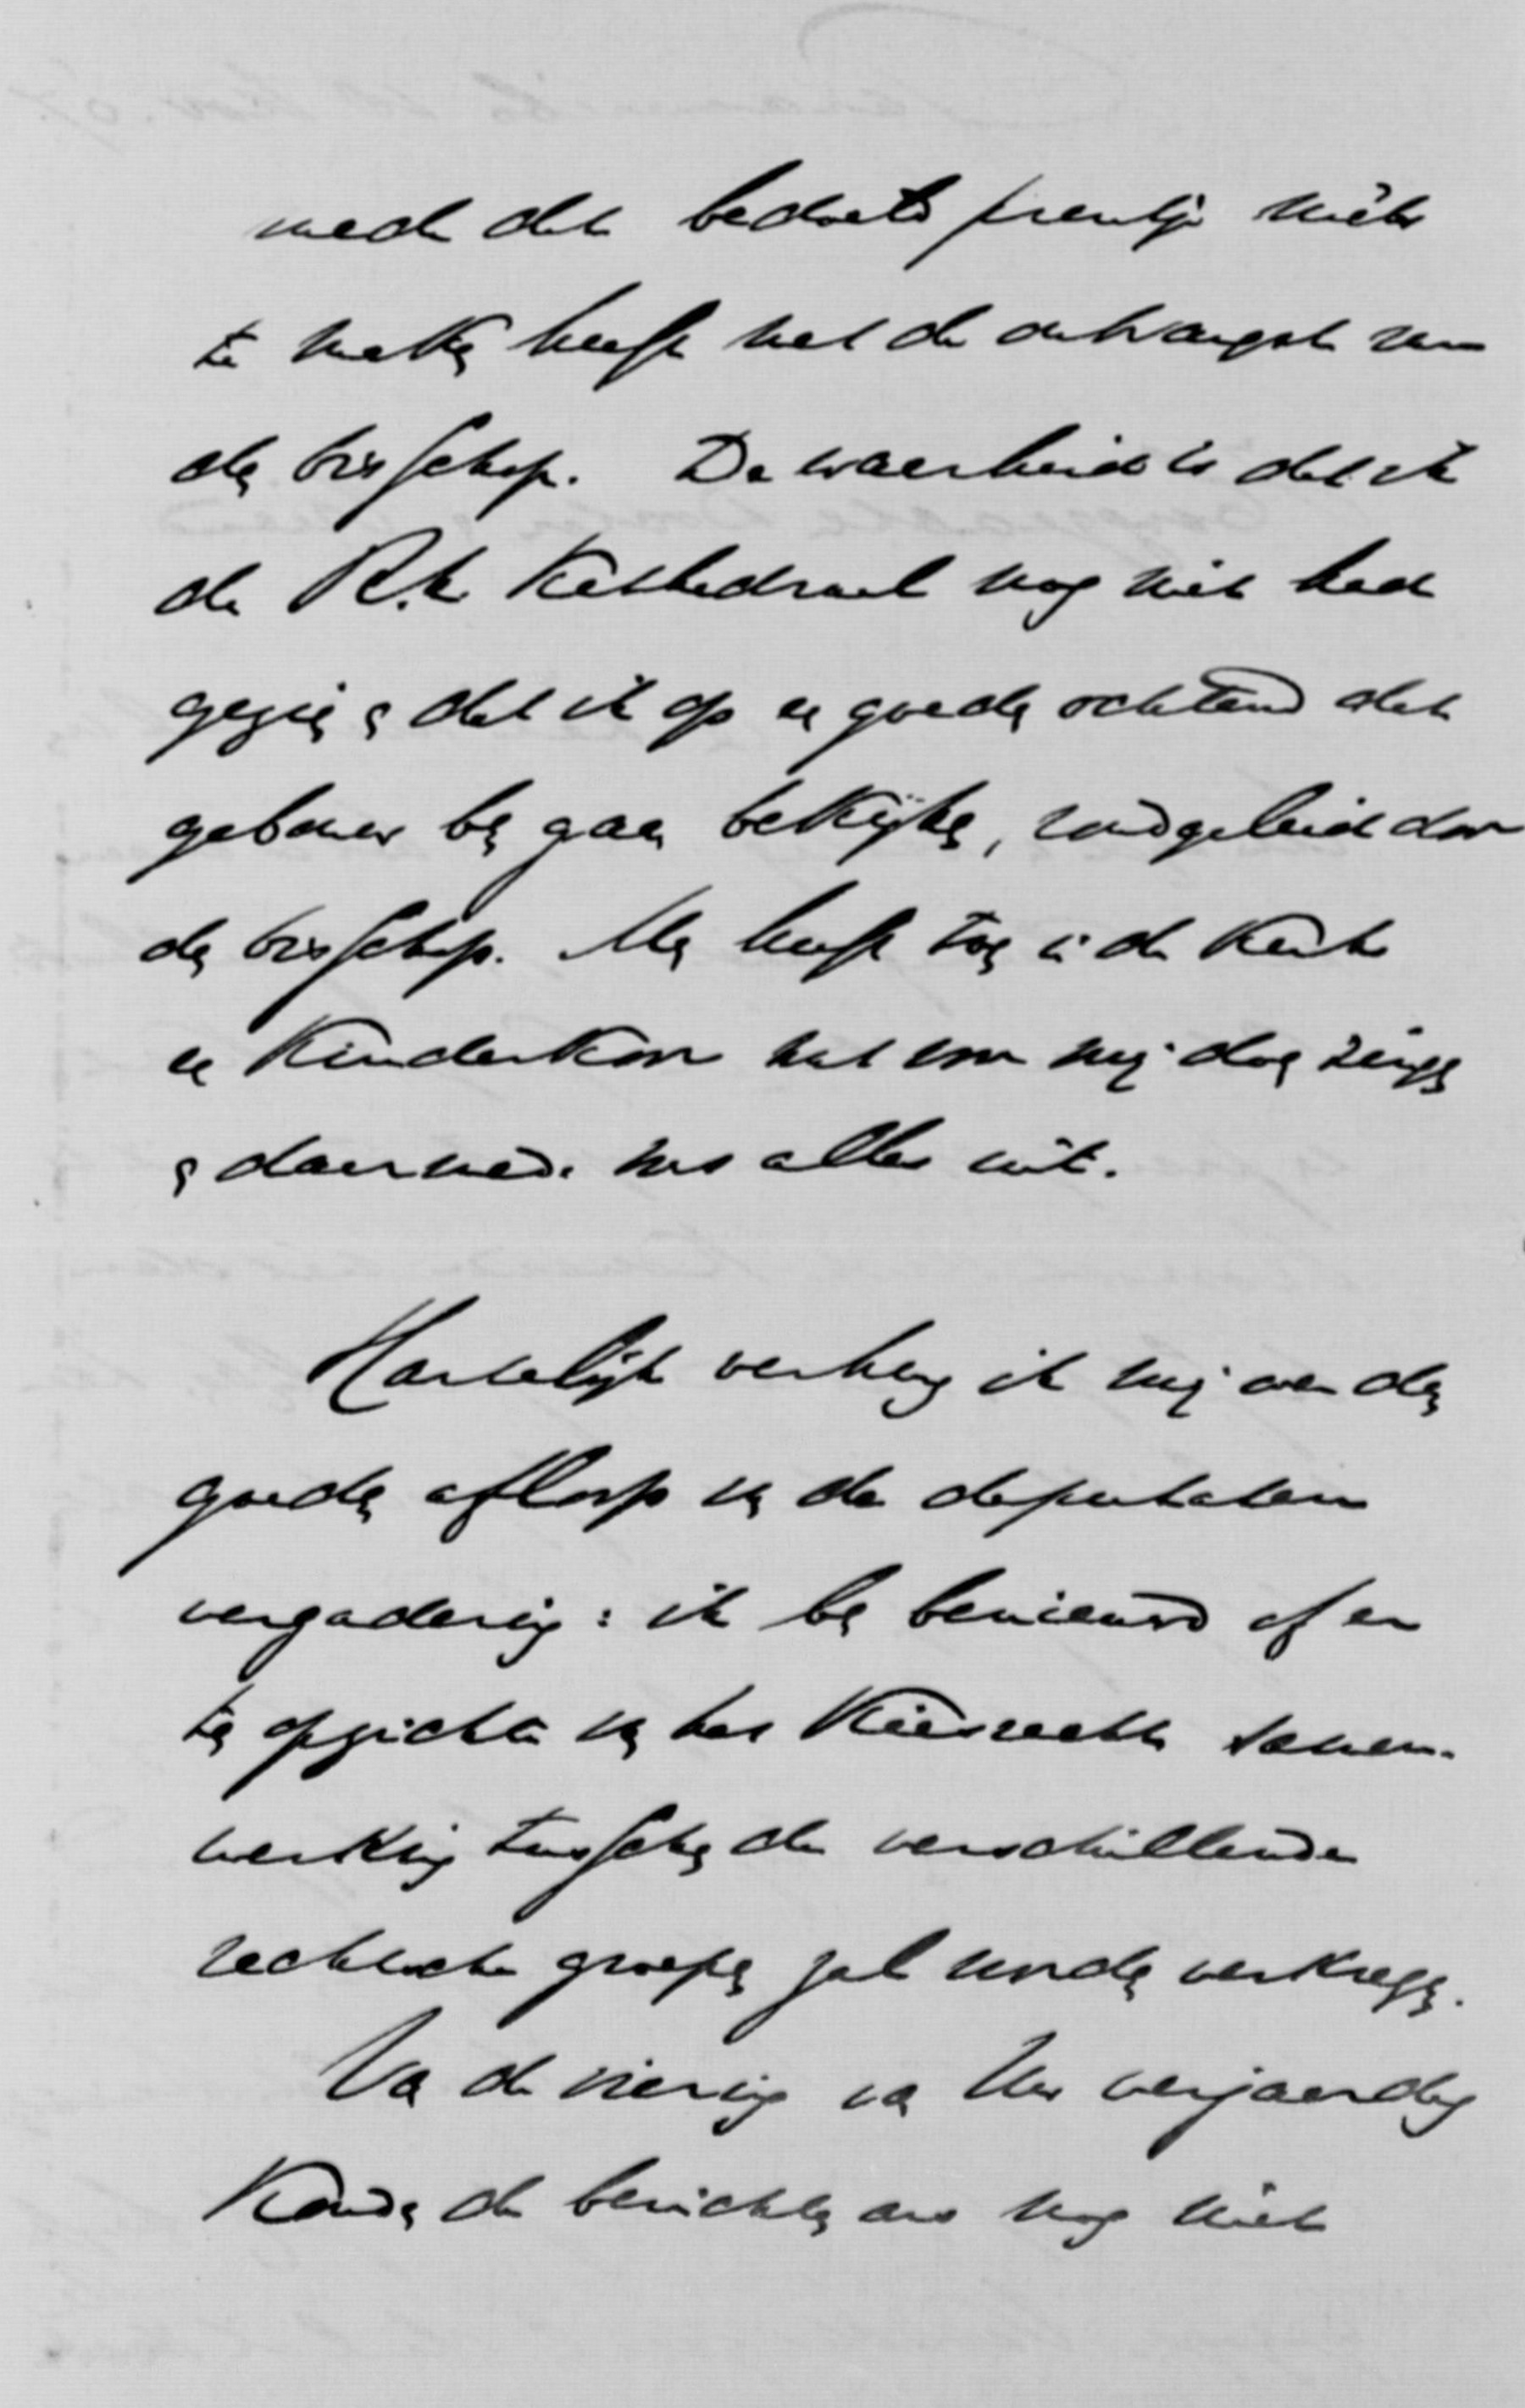 mede dat bedoeld prentje niets
te maken heeft met de ontvangst van
den bisschop. De waarheid is dat ik
de R.K. Kathedraal nog niet had
gezien en dat ik op een goeden ochtend dat
gebouw ben gaan bekijken, rondgeleid door
den bisschop. Men heeft toen in de kerk
een Kinderkoor wat voor mij doen zingen
en daarmede was alles uit.
Hartelijk verheug ik mij over den
goeden afloop van de deputaten
vergadering: ik ben benieuwd of er
ten opzichte van het Kiesrecht samen-
werking tusschen de verschillende
rechtsche groepen zal worden verkregen.
Van de viering van Uw verjaardag
Konden de berichten ons nog niet